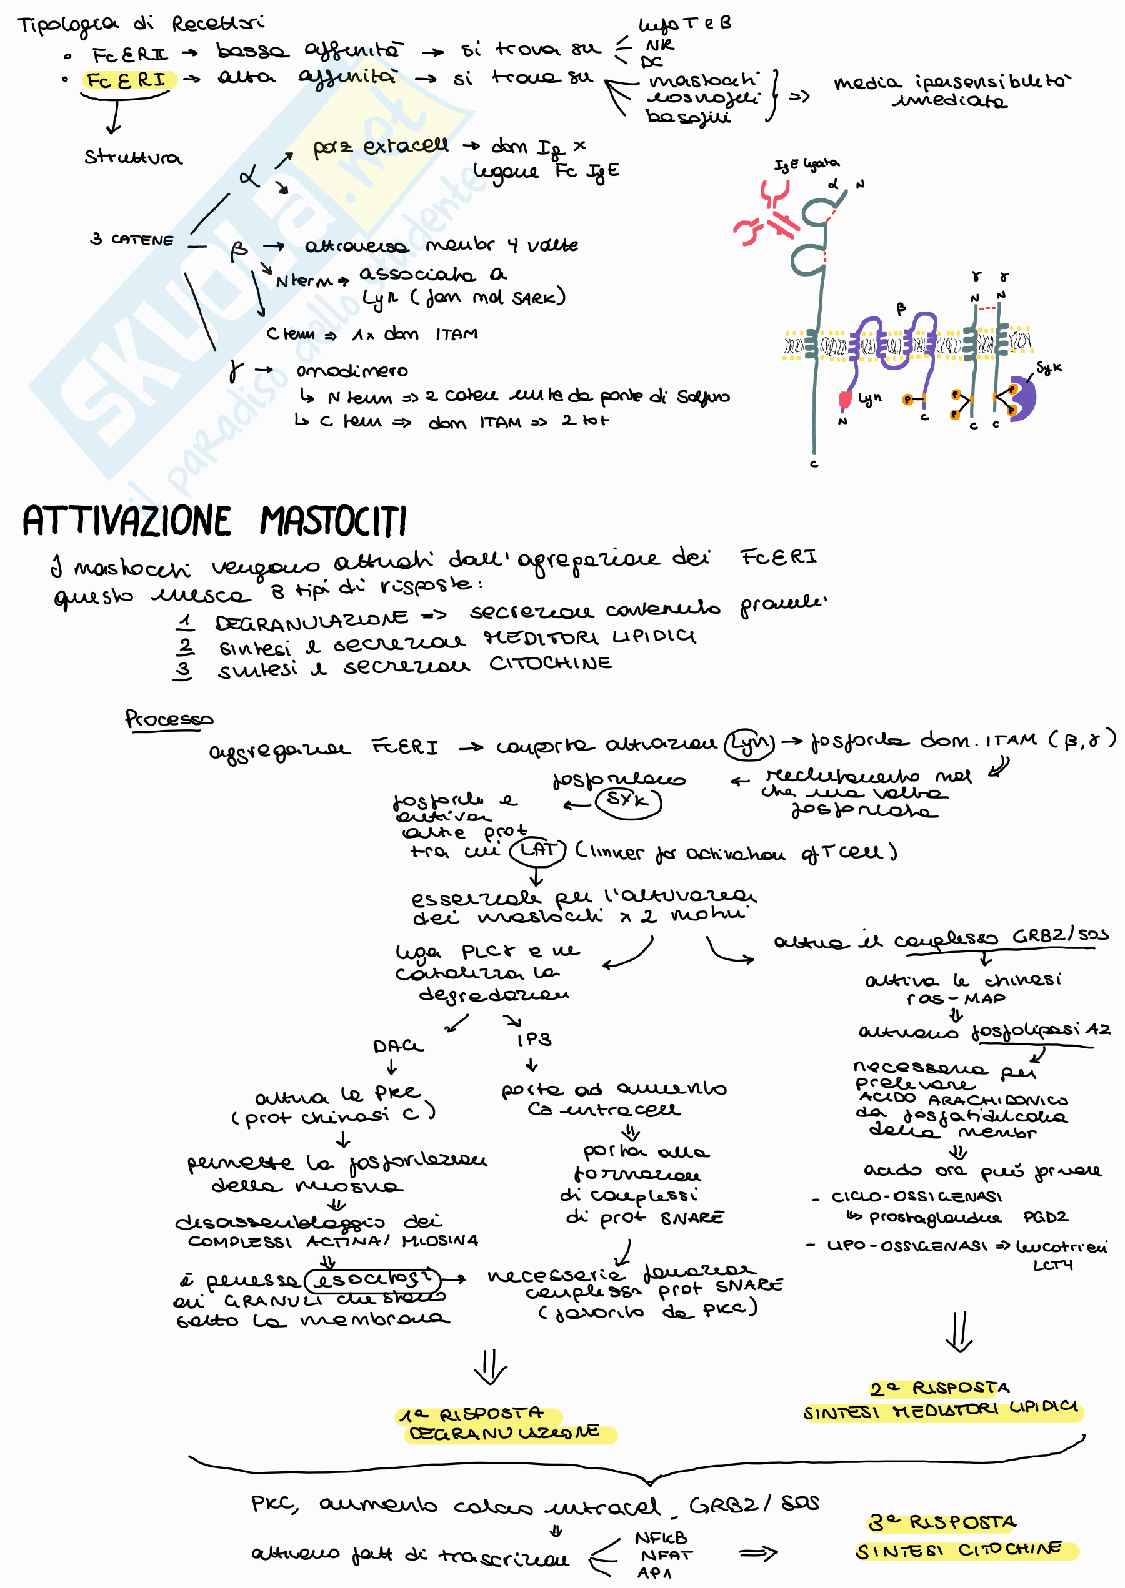 Tipologia di Recettori
• FcERII → bassa affinità → si trova su
linfo T e B
NK
DC
• FcERI → alta affinità → si trova su
mastociti
eosinofili
basofili
=> media ipersensibilità
immediata
Struttura
3 CATENE
α
porz extracell → dom Ig x
legame Fc IgE
β → attraversa membr 4 volte
N term → associata a
Lyn (fam mol SARK)
C term => 1x dom ITAM
γ → omodimero
↳ N term => 2 catene unite da ponte di Solfuro
↳ C term => dom ITAM => 2 tot
IgE legata
α N
β
γ γ
N N
Lyn
N
P
C
P
P
C C
P
P
Syk
C
SKUOLA.net
il paradiso dello studente
ATTIVAZIONE MASTOCITI
I mastociti vengono attivati dall'aggregazione dei FcERI
questo innesca 3 tipi di risposte:
1 DEGRANULAZIONE => secrezione contenuto granuli
2 sintesi e secrezione MEDITORI LIPIDICI
3 sintesi e secrezione CITOCHINE
Processo
aggregazione FcERI → comporta attivazione Lyn → fosforila dom. ITAM (β,γ)
reclutamento mol
che una volta
fosforilata
fosforilano
SYK
fosforila e
attiva
altre prot
tra cui LAT (linker for activation of T cell)
essenziale per l'attivazione
dei mastociti x 2 motivi
lega PLCγ e ne
catalizza la
degradazione
DAG
↓
attiva le PKC
(prot chinasi C)
↓
permette la fosforilazione
della miosina
disassemblaggio dei
COMPLESSI ACTINA/MIOSINA
è permessa esocitosi
di GRANULI che stanno
sotto la membrana
IP3
↓
porta ad aumento
Ca-intracell
porta alla
formazione
di complessi
di prot SNARE
necessaria formazione
complessi prot SNARE
(favorito da PKC)
attiva il complesso GRB2/SOS
attiva le chinasi
ras-MAP
attivano fosfolipasi A2
necessaria per
prelevare
ACIDO ARACHIDONICO
da fosfatidilcolina
della membr
acido ora può private
- CICLO-OSSIGENASI
↳ prostaglandina PGD2
- LIPO-OSSIGENASI => leucotrieni
LCT4
1ª RISPOSTA
DEGRANULAZIONE
2ª RISPOSTA
SINTESI MEDIATORI LIPIDICI
PKC, aumento calcio intracel, GRB2/SOS
attivano fatt di trascrizione
NFKB
NFAT
AP1
=>
3ª RISPOSTA
SINTESI CITOCHINE